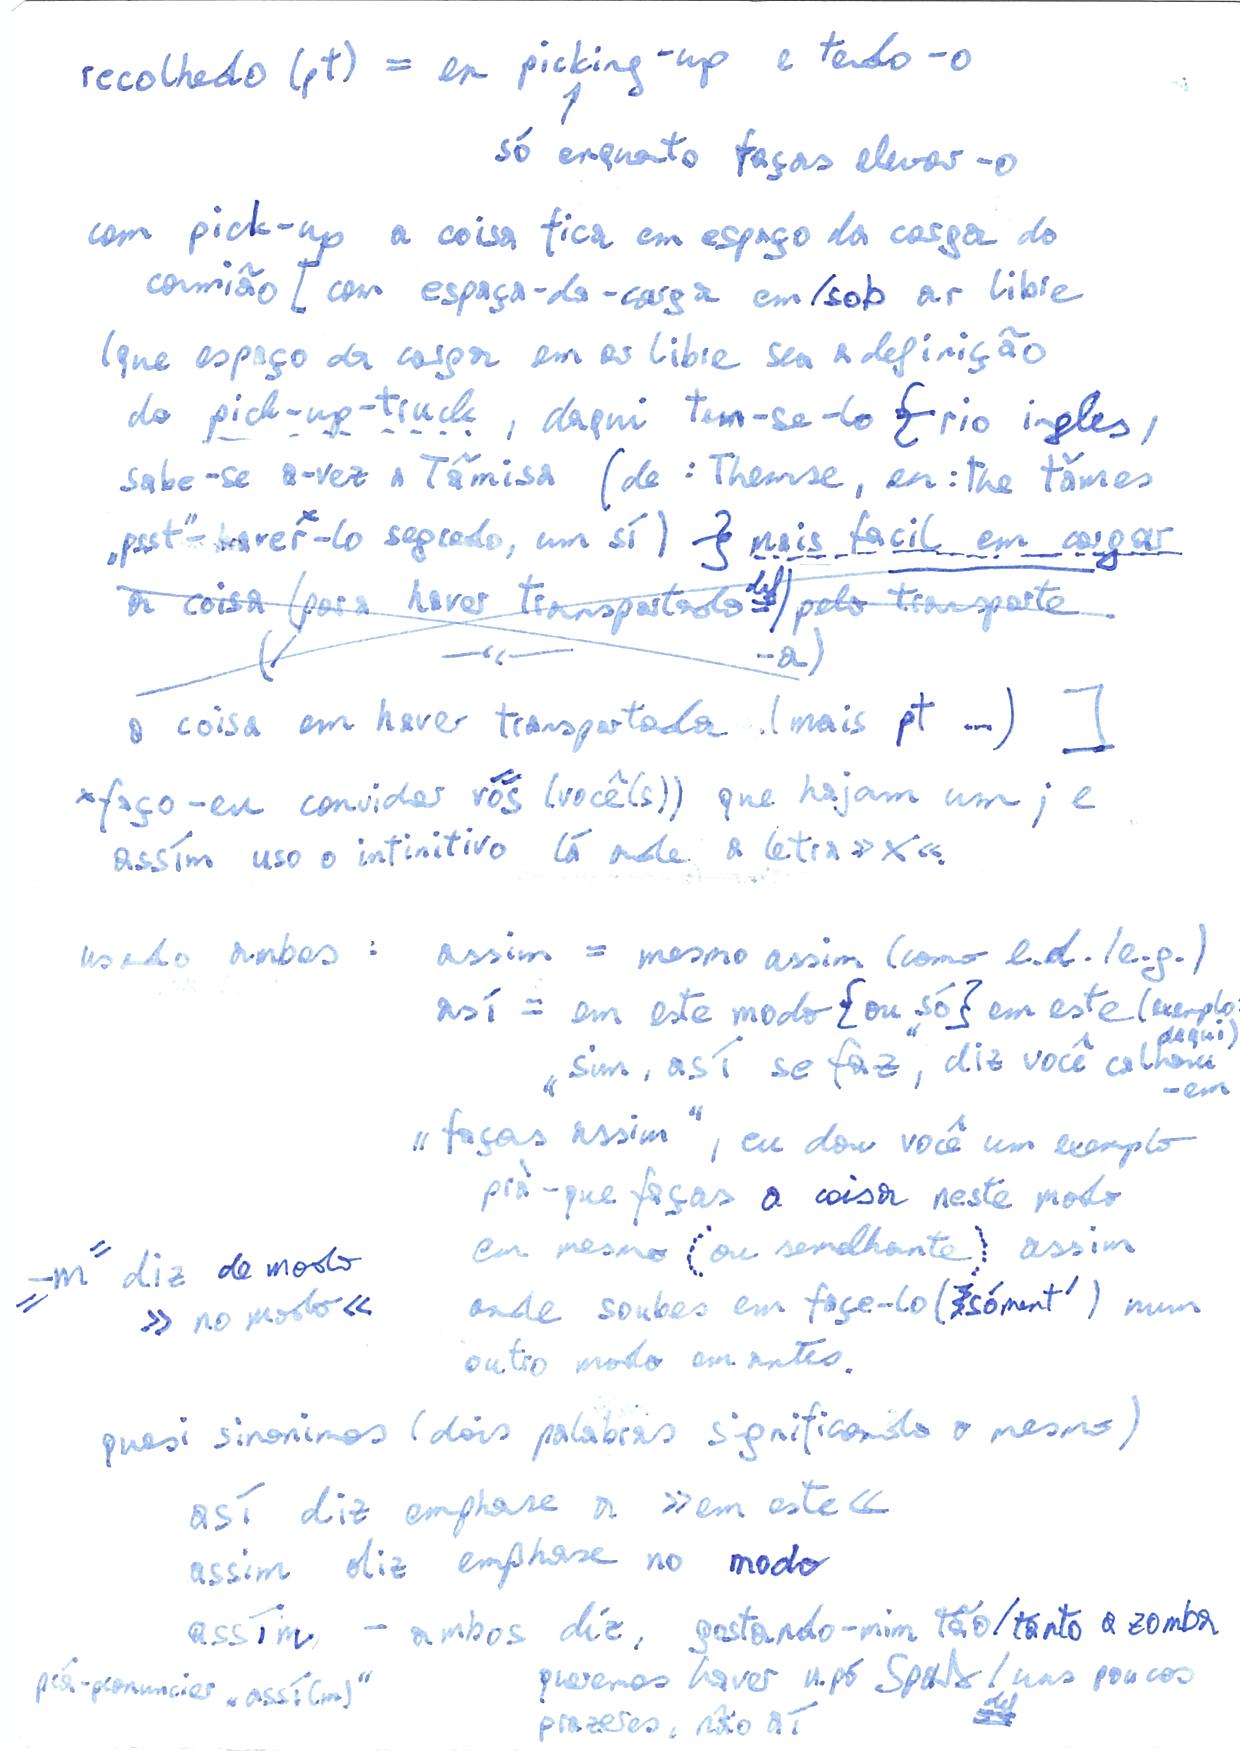 recolhedo (pt) = en picking-up e tendo-o
só enquanto faças elevar-o
com pick-up a coisa fica em espaço da carga do
camião [ com espaça-da-carga em/sob ar libre
(que espaço da carga em ar libre sea a definição
do pick-up-truck, daqui tem-se-lo { rio ingles,
sabe-se a-vez a Tãmisa (de: Themse, en: the tămes
„psst"-haver*-lo segredo, um sí) } mais facil em cargar
a coisa (para haver transportado def) pelo transporte
( —"— -a)
a coisa em haver transportada (mais pt ...) ]
*faço-eu convidar vós (você(s)) que hajam um; e
assím uso o infinitivo lá onde a letra »x«.
usado ambos: assim = mesmo assim (como e.d./e.g.)
así = em este modo {ou só} em este (exemplo:
daqui)
„sim, así se faz", diz você calhou
-em
„faças assim", eu dou você um exemplo
prà-que faças a coisa neste modo
em mesmo (ou semelhante) assim
„-m" diz de modo
»no modo«
onde soubes em façe-lo (sóment') num
outro modo em antes.
quasi sinonimos (dois palabras significando o mesmo)
así diz emphase a »em este«
assim diz emphase no modo
assím, - ambos díz, gostando-mim tão/tanto a zomba
prá-pronuncier „assí(m)"
queremos haver Spaß / uns poucos
def
prazeres, não aí